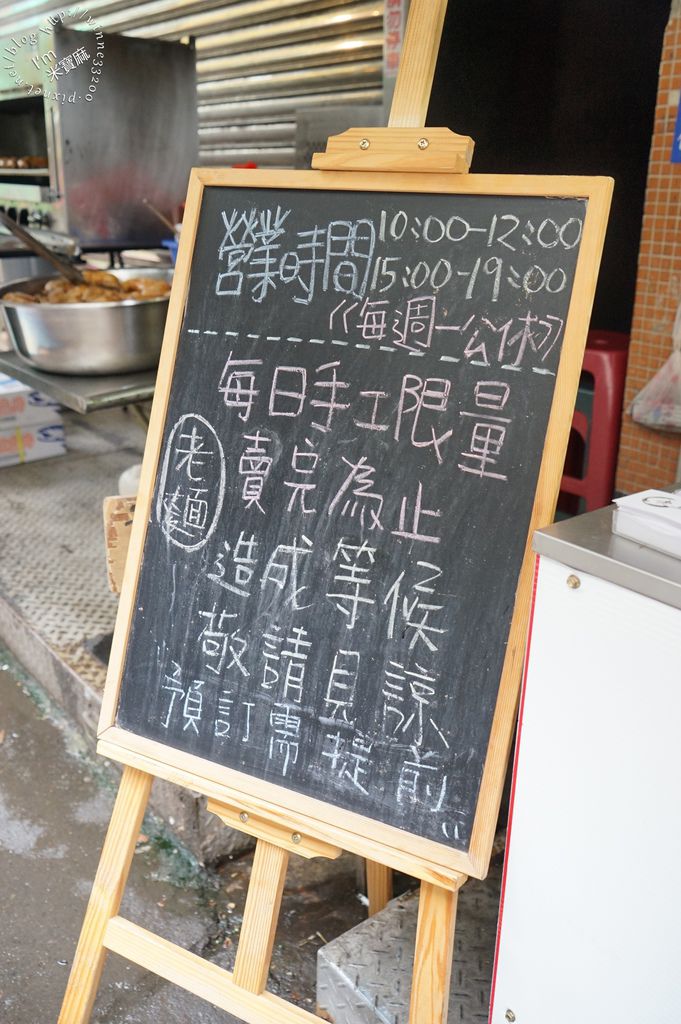 I'm 米寶麻
http://winne33200.pixnet.net/blog
營業時間 10:00-12:00
15:00-19:00
《每週一公休》
每日手工限量
老麵
賣完為止
造成等候
敬請見諒
預訂需提前